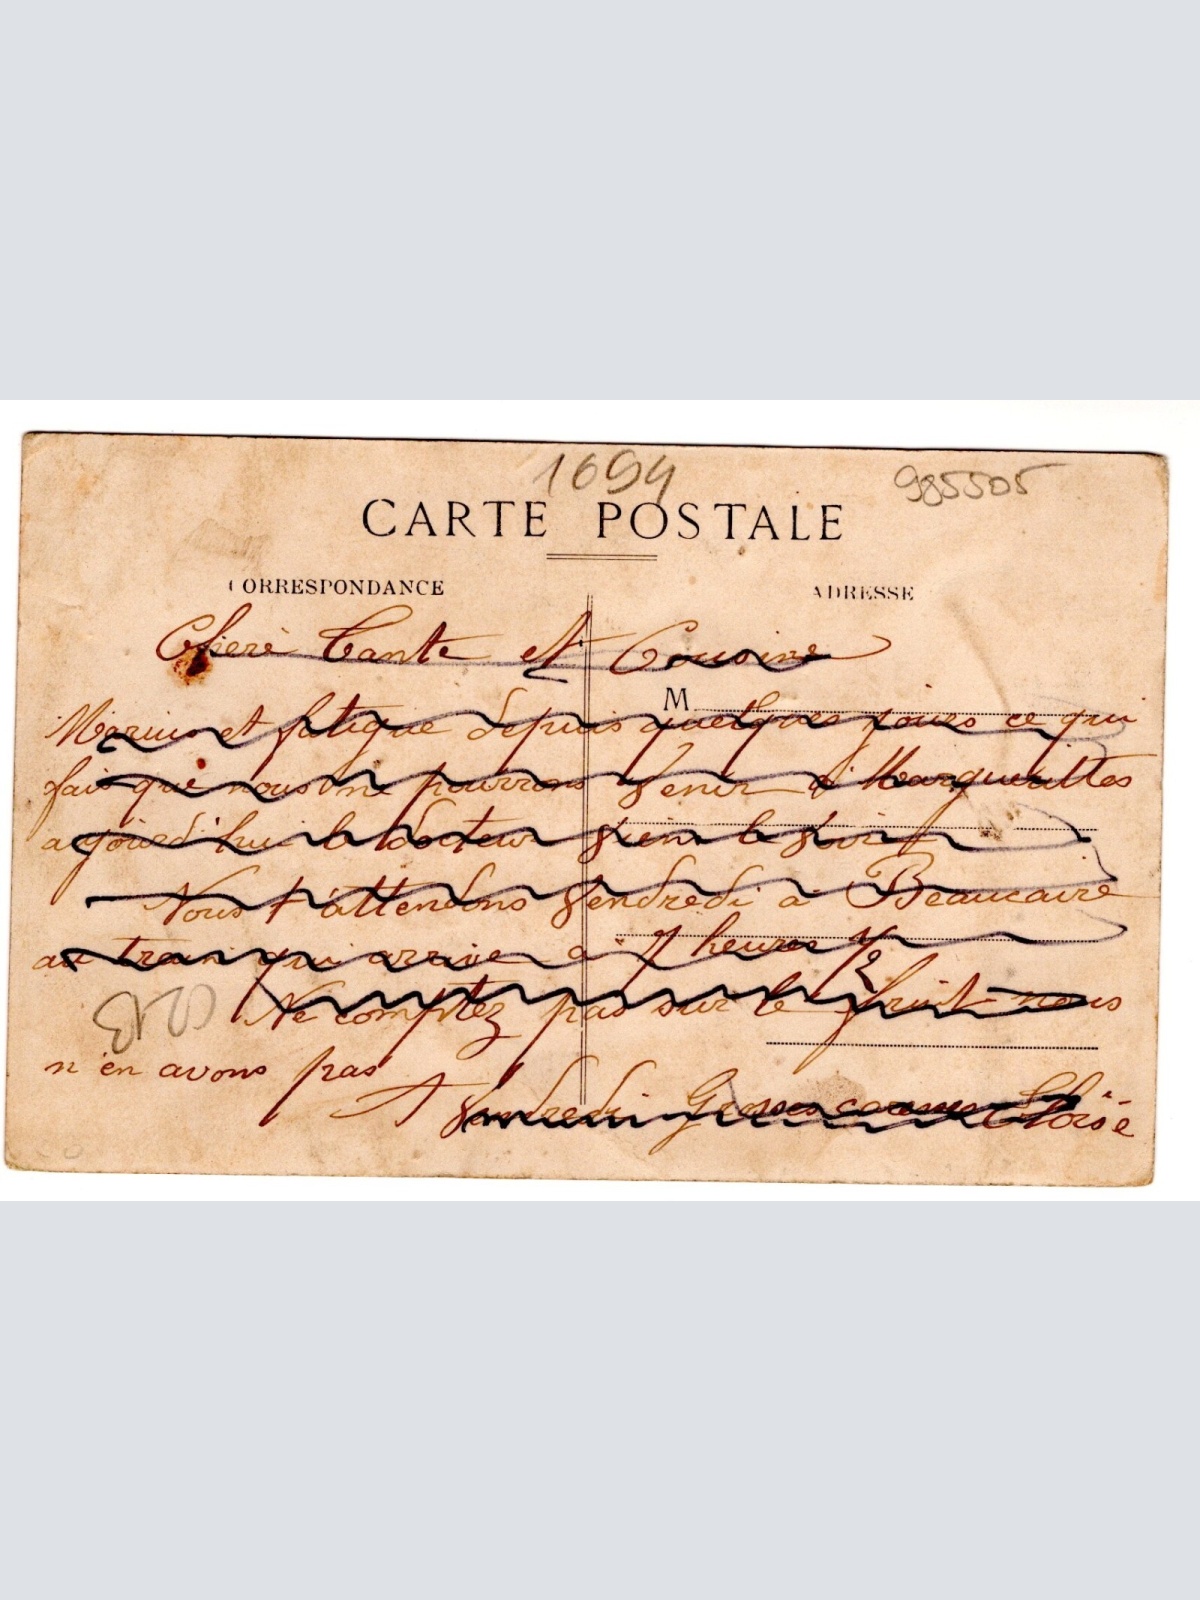 1694
985505
CARTE POSTALE
CORRESPONDANCE
ADRESSE
Cherè Tante et Cousine
M
Marius et fatigue depuis quelques jours ce qui
fais que nous ne pourrons venir à Marguerittes
ajourd'hui le docteur vien le voir
Nous t'attendons vendredi à Beaucaire
au train qui arrive a 7 heures 1/2
Ne comptez pas sur le fruit nous
n'en avons pas
A vendredi Grosses caresses Eloïse